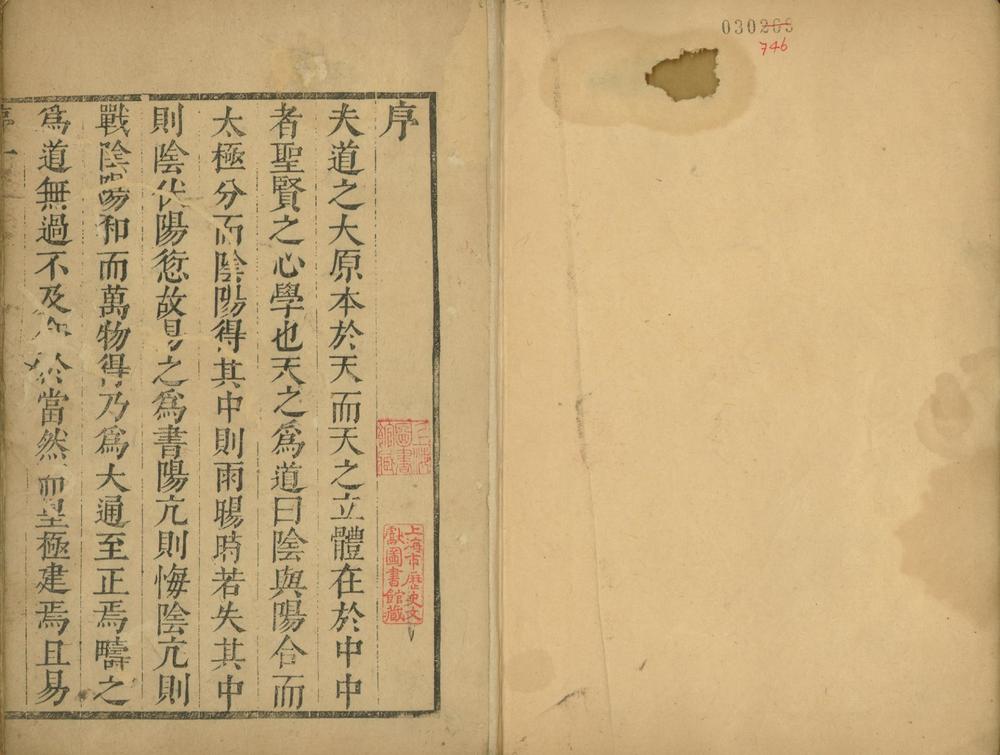 030269
746
序
夫道之大原本於天而天之立體在於中中
者聖賢之心學也天之爲道曰陰與陽合而
太極分而陰陽得其中則雨暘時若失其中
則陰伏陽愆故易之爲書陽亢則悔陰亢則
戰陰陽和而萬物得乃爲大通至正焉疇之
爲道無過不及 於當然而皇極建焉且易
序 一
上海圖書館藏
上海市歷史文
獻圖書館藏